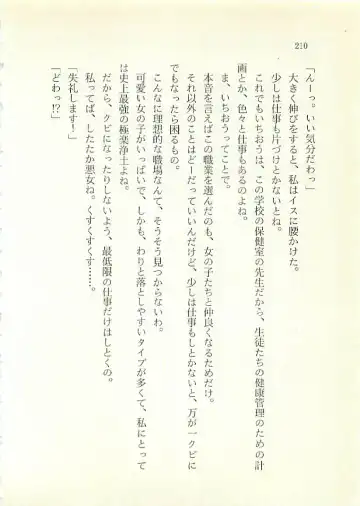 210
「んーっ。いい気分だわっ」
大きく伸びをすると、私はイスに腰かけた。
少しは仕事も片づけとかないとね。
これでもいちおうは、この学校の保健室の先生だから、生徒たちの健康管理のための計
画とか、色々と仕事もあるのよね。
ま、いちおうってことで。
本音を言えばこの職業を選んだのも、女の子たちと仲良くなるためだけ。
それ以外のことはどーだっていいんだけど、少しは仕事もしとかないと、万が一クビに
でもなったら困るもの。
こんなに理想的な職場なんて、そうそう見つからないわ。
可愛い女の子がいっぱいで、しかも、わりと落としやすいタイプが多くて、私にとって
は史上最強の極楽浄土よね。
だから、クビになったりしないよう、最低限の仕事だけはしとくの。
私ってば、したたか悪女ね。くすくすくす……。
「失礼します！」
「どわっ!?」